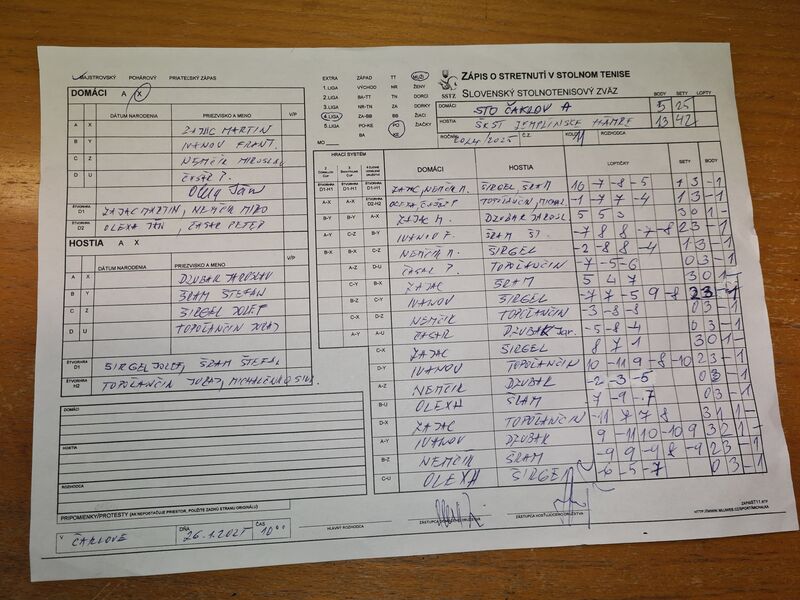 MAJSTROVSKÝ POHÁROVÝ PRIATEĽSKÝ ZÁPAS
DOMÁCI A X
DÁTUM NARODENIA PRIEZVISKO A MENO V/P
A X ZAJAC MARTIN
B Y IVANOV FRANT.
C Z NEMČÍK MIROSLAV
D U ČASAR P.
ŠTVORHRA D1 ZAJAC MARTIN, NEMČÍK MIRO
ŠTVORHRA D2 OLEXA JÁN, ČASAR PETER
HOSTIA A X
DÁTUM NARODENIA PRIEZVISKO A MENO V/P
A X DZUBAK JAROSLAV
B Y ŠRAM ŠTEFAN
C Z ŠIRGEL JOZEF
D U TOPOĽANČIN JURAJ
ŠTVORHRA D1 ŠIRGEL JOZEF, ŠRAM ŠTEFAN
ŠTVORHRA H2 TOPOĽANČIN JURAJ,
DOMÁCI
HOSTIA
ROZHODCA
PRIPOMIENKY/PROTESTY (AK NEPOSTAČUJE PRIESTOR, POUŽITE ZADNÚ STRANU ORIGINÁLU)
V ČAKLOVE DŇA 26.1.2025 ČAS 10 00
HLAVNÝ ROZHODCA
ZÁSTUPCA DOMÁCEHO DRUŽSTVA
ZÁSTUPCA HOSŤUJÚCEHO DRUŽSTVA
EXTRA ZÁPAD TT MUŽI
1.LIGA VÝCHOD NR ŽENY
2.LIGA BA-TT TN DORCI
3.LIGA NR-TN ZA DORKY
4.LIGA ZA-BB BB ŽIACI
5.LIGA PO-KE PO ŽIAČKY
BA KE
MO
SSTZ
ZÁPIS O STRETNUTÍ V STOLNOM TENISE
SLOVENSKÝ STOLNOTENISOVÝ ZVÄZ
BODY SETY LOPTY
DOMÁCI STO ČAKLOV A 5 25
HOSTIA ŠKST TEMPLÍNSKE HÁMRE 13 42
ROČNÍK 2024/2025 Č.Z. KOLO 11 ROZHODCA
HRACÍ SYSTÉM DOMÁCI HOSTIA LOPTIČKY SETY BODY
D1-H1 D1-H1 D1-H1 ZAJAC, NEMČÍK M. ŠIRGEL, ŠRAM 10 -7 -8 -5 1 3 -1
A-X A-X D2-H2 OLEXA, ČASAR P TOPOĽANČIN, MICHAL -1 -7 7 -4 1 3 -1
B-Y B-Y A-X ZAJAC M. DZUBAK JAROSL 5 5 3 3 0 1 -
A-Y C-Z B-Y IVANOV F. ŠRAM ŠT. -7 8 8 -7 -8 2 3 -1
B-X B-X C-Z NEMČÍK M. ŠIRGEL -2 -8 8 -4 1 3 -1
A-Z D-U ČASAR P. TOPOĽANČIN -7 -5 -6 0 3 -1
C-Y B-X ZAJAC ŠRAM 5 4 7 3 0 1 -
B-Z C-Y IVANOV ŠIRGEL -7 7 -5 9 -8 2 3 -1
C-X D-Z NEMČÍK TOPOĽANČIN -3 -8 -8 0 3 -1
A-Y A-U ČASAR DZUBAK Jar. -5 -8 4 0 3 -1
C-X ZAJAC ŠIRGEL 8 7 1 3 0 1 -
D-Y IVANOV TOPOĽANČIN 10 -11 9 -8 -10 2 3 -1
A-Z NEMČÍK DZUBAK -2 -3 -5 0 3 -1
B-U OLEXA ŠRAM -7 -9 -7 0 3 -1
D-X ZAJAC TOPOĽANČIN -11 7 7 8 3 1 1 -
A-Y IVANOV DZUBAK 9 -11 10 -10 9 3 2 1 -
B-Z NEMČÍK ŠRAM -9 9 -9 8 -9 2 3 -1
C-U OLEXA ŠIRGEL -6 -5 -7 0 3 -1
ZAPISST11.RTF